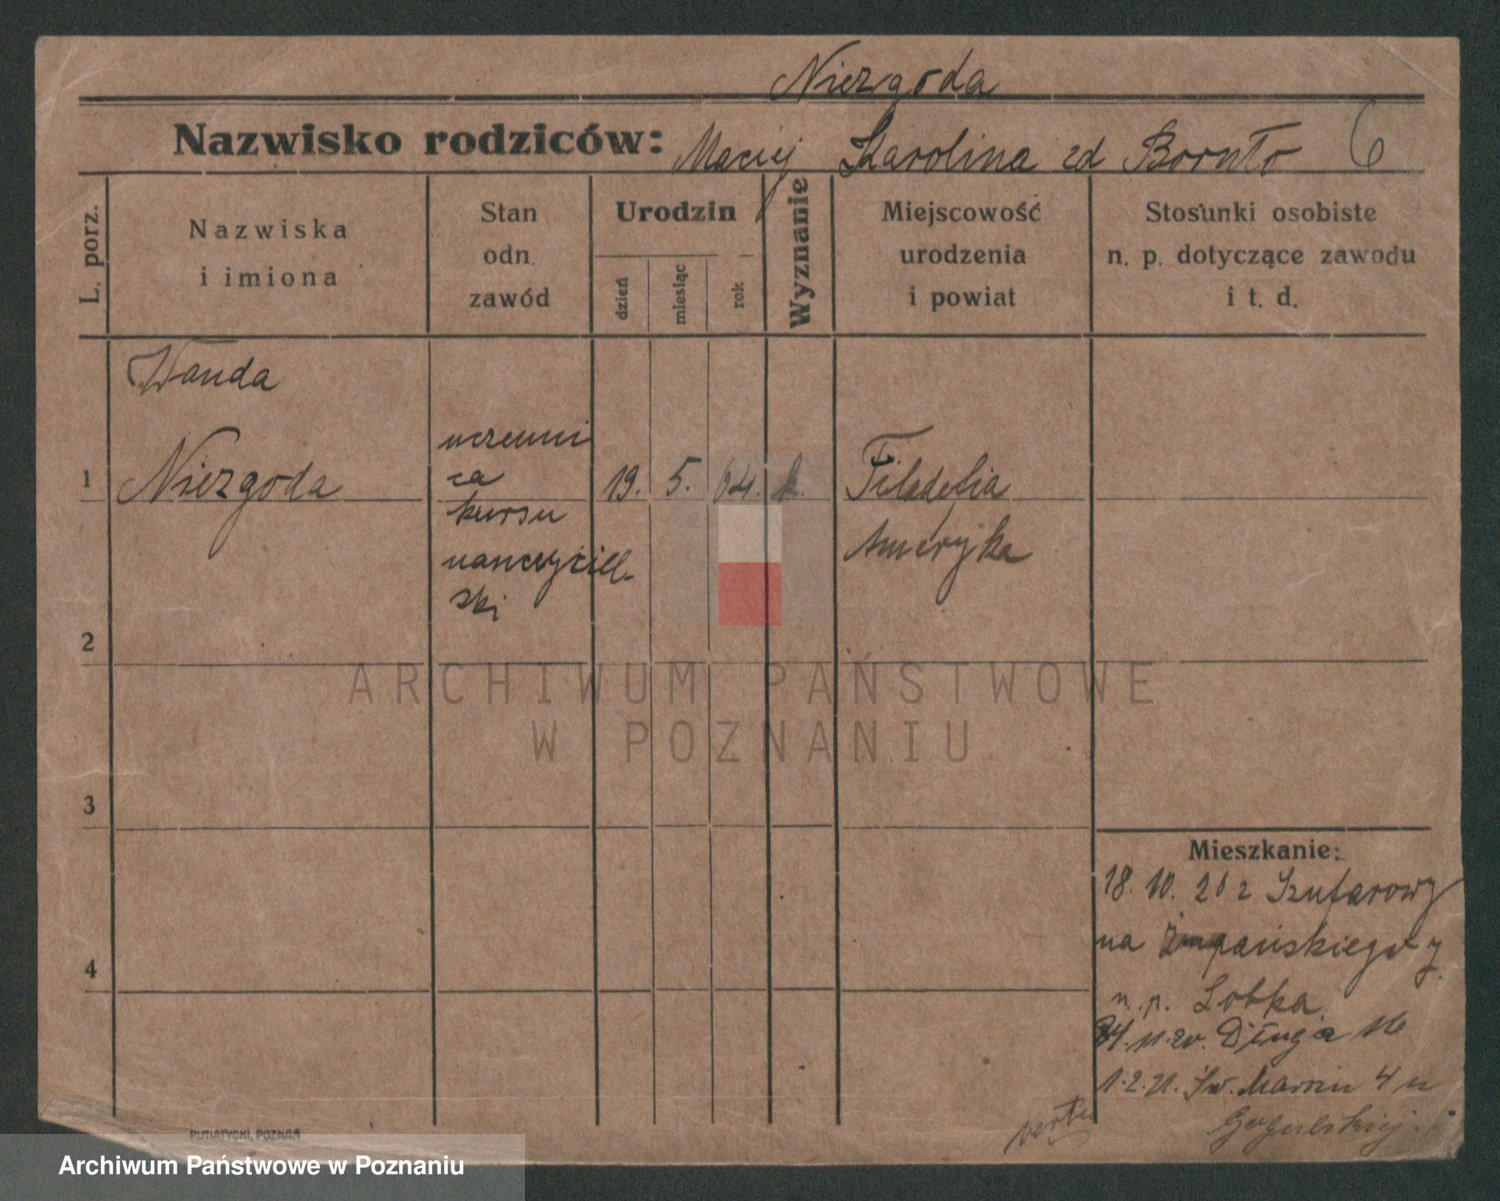 Niezgoda
Nazwisko rodziców: Maciej Karolina zd 6
L. porz.
Nazwiska
i imiona
Stan
odn.
zawód
Urodzin
dzień
miesiąc
rok
Wyznanie
Miejscowość
urodzenia
i powiat
Stosunki osobiste
n. p. dotyczące zawodu
i t. d.
Wanda
1 Niezgoda
uczenni
ca
kursu
nauczyciel-
ski
19. 5. 04. k.
Filadelfia
Ameryka
2
3
4
Mieszkanie:
18. 10. 20 z
na Żupańskiego 7
n. p.
11.20. Długa 16
1.2.21. Św. Marcin 4 u
verte
PUTIATYCKI, POZNAŃ
ARCHIWUM PAŃSTWOWE
W POZNANIU
Archiwum Państwowe w Poznaniu